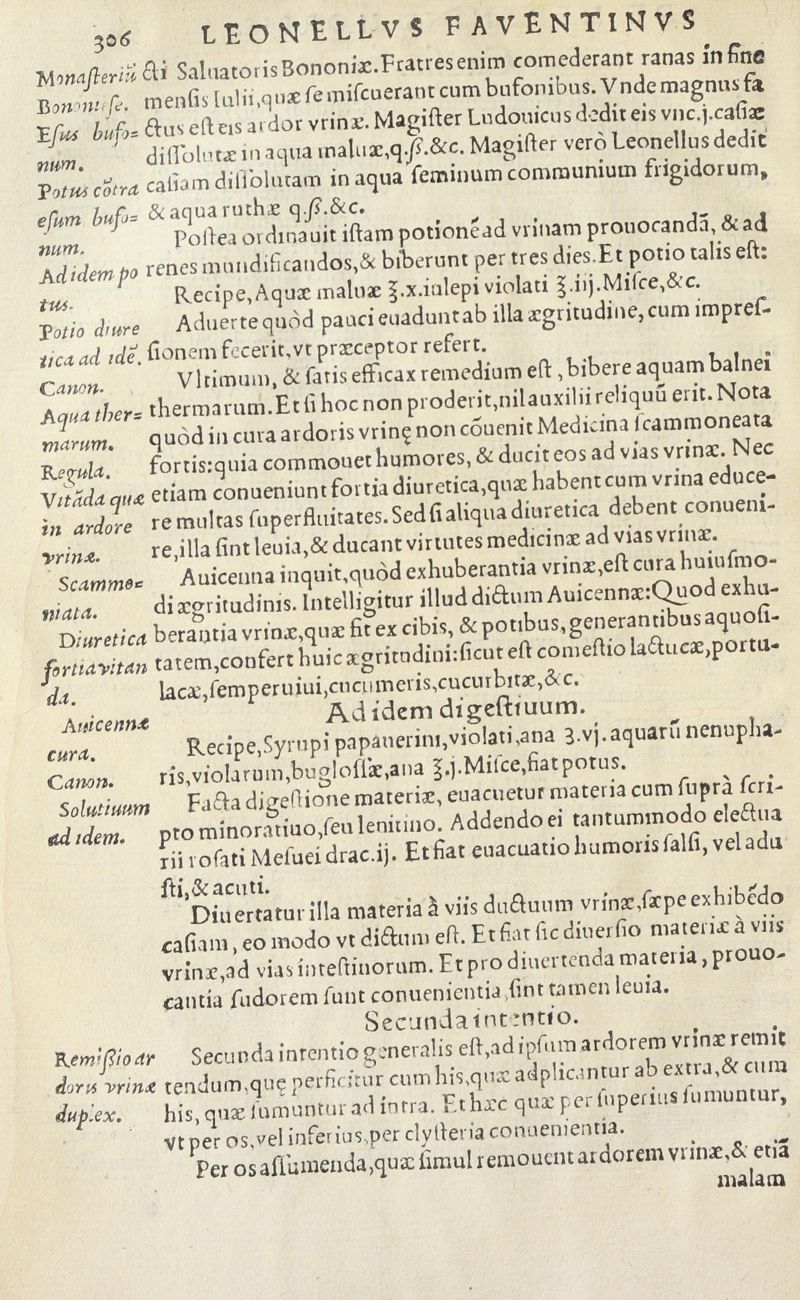 306 LEONELLVS FAVENTINVS
Monaſteriū
Bononiēſe.
Eſus bufo=
num.
Potus cōtra
eſum bufo=
num.
Ad idem po
tus.
Potio diure
tica ad idē.
Canon.
Aqua ther=
marum.
Regula.
Vitāda quæ
in ardore
vrinæ.
Scammo=
niata.
Diuretica
fortia vitan
da.
Auicennæ
cura.
Canon.
Solutiuum
ad idem.
Remiſsio ar
doris vrinæ
duplex.
cti Saluatoris Bononiæ. Fratres enim comederant ranas in fine
menſis Iulii, quæ ſe miſcuerant cum bufonibus. Vnde magnus fa
ctus eſt eis ardor vrinæ. Magiſter Ludouicus dedit eis vnc.j. caſiæ
diſſolutæ in aqua maluæ, q.ß. &c. Magiſter verò Leonellus dedit
caſiam diſſolutam in aqua ſeminum communium frigidorum,
& aqua ruthæ q.ß. &c.
Poſtea ordinauit iſtam potionē ad vrinam prouocandā, & ad
renes mundificandos, & biberunt per tres dies. Et potio talis eſt:
Recipe, Aquæ maluæ ℥.x. iulepi violati ℥.iij. Miſce, &c.
Aduerte quòd pauci euadunt ab illa ægritudine, cum impreſ-
ſionem fecerit, vt præceptor refert.
Vltimum, & ſatis efficax remedium eſt, bibere aquam balnei
thermarum. Et ſi hoc non proderit, nil auxilii reliquū erit. Nota
quòd in cura ardoris vrinę non cōuenit Medicina ſcammoneata
fortis: quia commouet humores, & ducit eos ad vias vrinæ. Nec
etiam conueniunt fortia diuretica, quæ habent cum vrina educe-
re multas ſuperfluitates. Sed ſi aliqua diuretica debent conueni-
re, illa ſint leuia, & ducant virtutes medicinæ ad vias vrinæ.
Auicenna inquit, quòd exhuberantia vrinæ, eſt cura huiuſmo-
di ægritudinis. Intelligitur illud dictum Auicennæ: Quod exhu-
berantia vrinæ, quæ fit ex cibis, & potibus, generantibus aquoſi-
tatem, confert huic ægritudini: ſicut eſt comeſtio lactucæ, portu-
lacæ, ſemperuiui, cucumeris, cucurbitæ, &c.
Ad idem digeſtiuum.
Recipe, Syrupi papauerini, violati, ana ʒ.vj. aquarū nenupha-
ris, violarum, bugloſſæ, ana ℥.j. Miſce, fiat potus.
Facta digeſtione materiæ, euacuetur materia cum ſuprà ſcri-
pto minoratiuo, ſeu lenitiuo. Addendo ei tantummodo electua
rii roſati Meſuei drac.ij. Et fiat euacuatio humoris ſalſi, vel adu
ſti, & acuti.
Diuertatur illa materia à viis ductuum vrinæ, ſæpe exhibēdo
caſiam, eo modo vt dictum eſt. Et fiat ſic diuerſio materiæ à viis
vrinæ, ad vias inteſtinorum. Et pro diuertenda materia, prouo-
cantia ſudorem ſunt conuenientia, ſint tamen leuia.
Secunda intentio.
Secunda intentio generalis eſt, ad ipſum ardorem vrinæ remit
tendum, quę perficitur cum his, quæ adplicantur ab extra, & cum
his, quæ ſumuntur ad intra. Et hæc quæ per ſuperius ſumuntur,
vt per os, vel inferius, per clyſteria conuenientia.
Per os aſſumenda, quæ ſimul remouent ardorem vrinæ, & etiā
malam